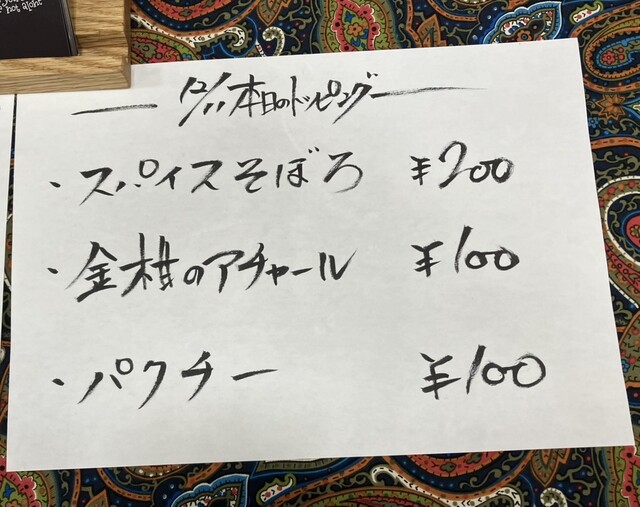 12/11本日のトッピング
・スパイスそぼろ ¥200
・金柑のアチャール ¥100
・パクチー ¥100